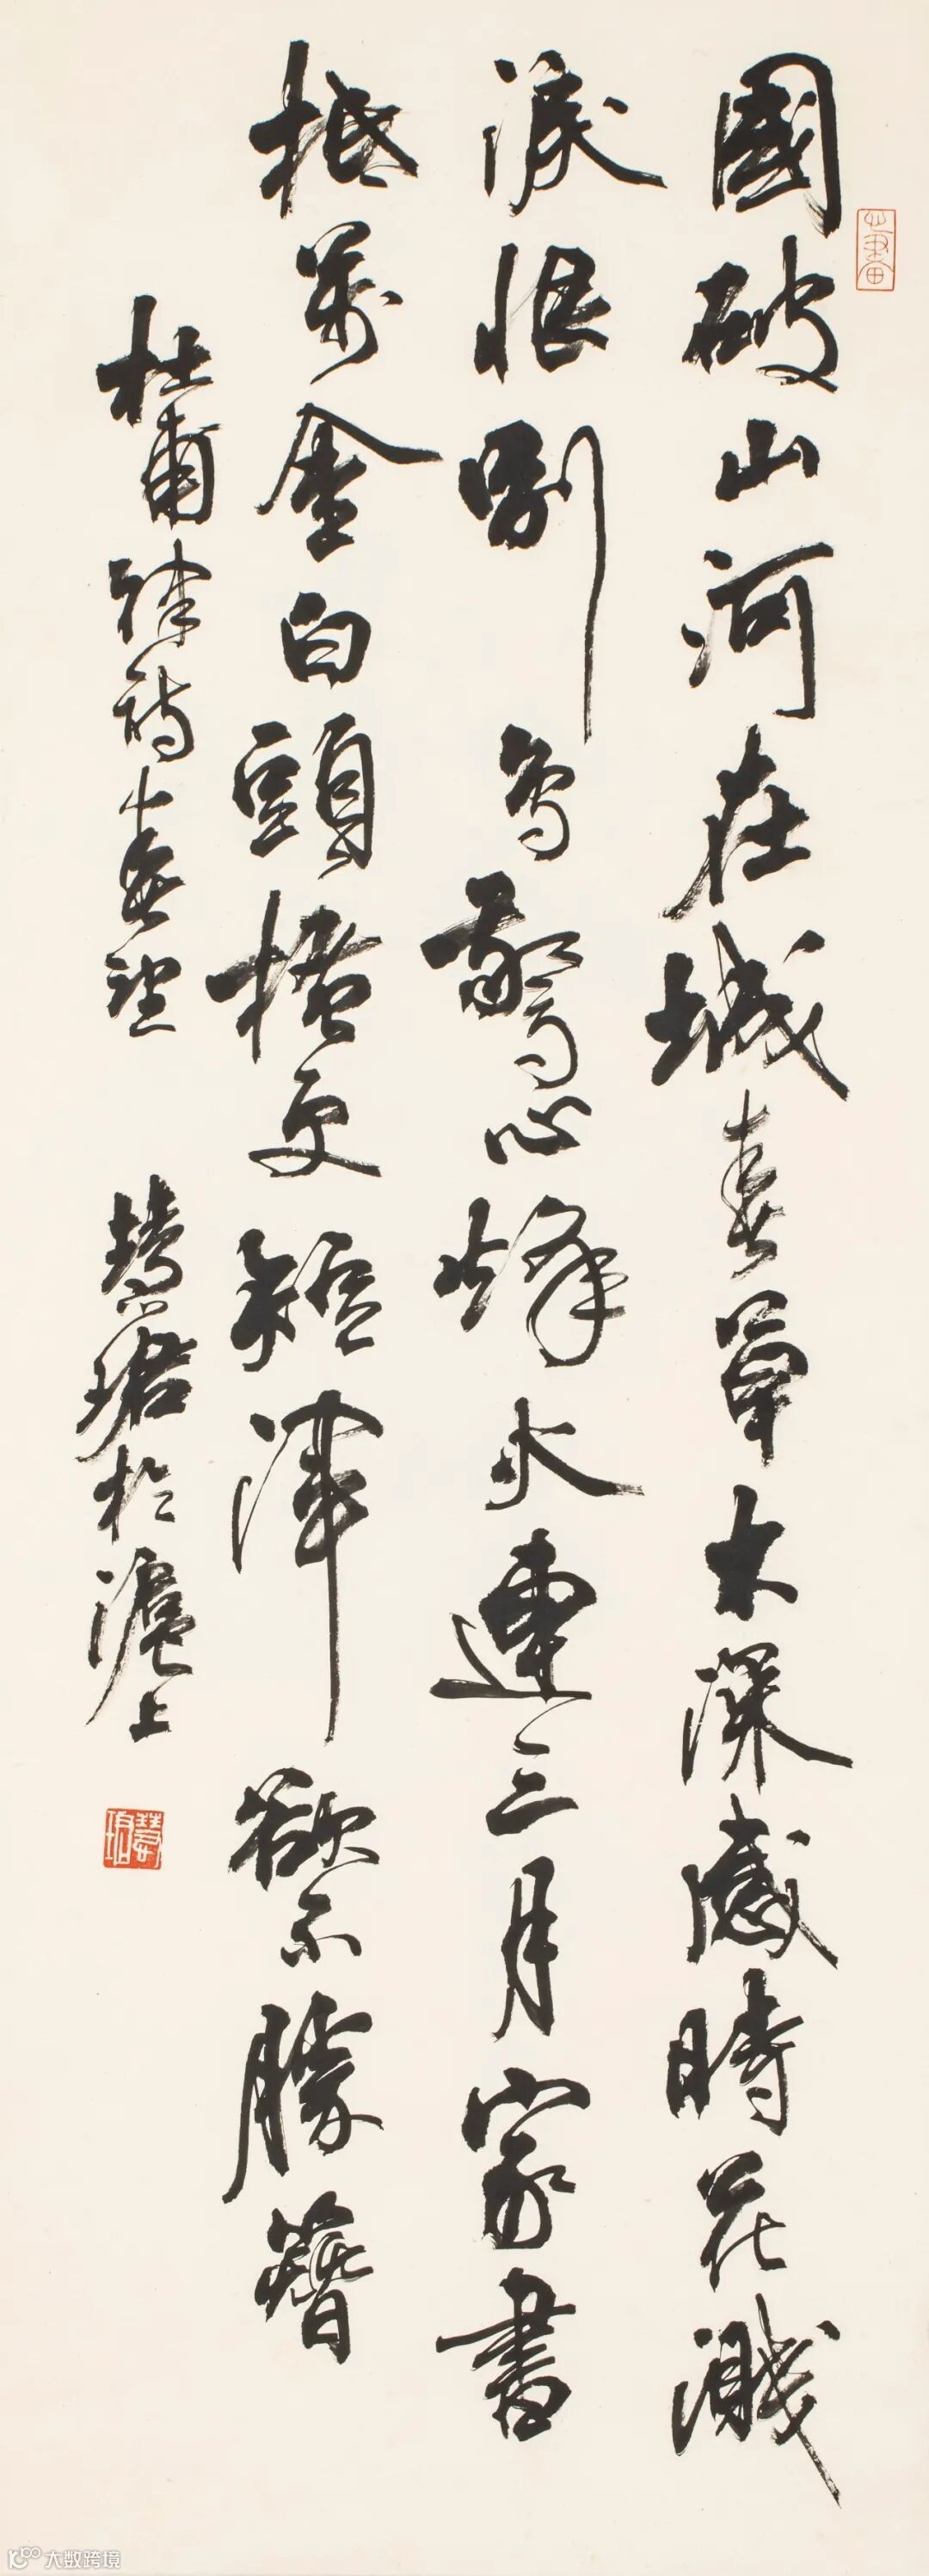 國破山河在城春草木深感時花濺
淚恨別鳥驚心烽火連三月家書
抵萬金白頭搔更短渾欲不勝簪
杜甫律詩春望 慧珺於滬上
慧珺
大数跨境